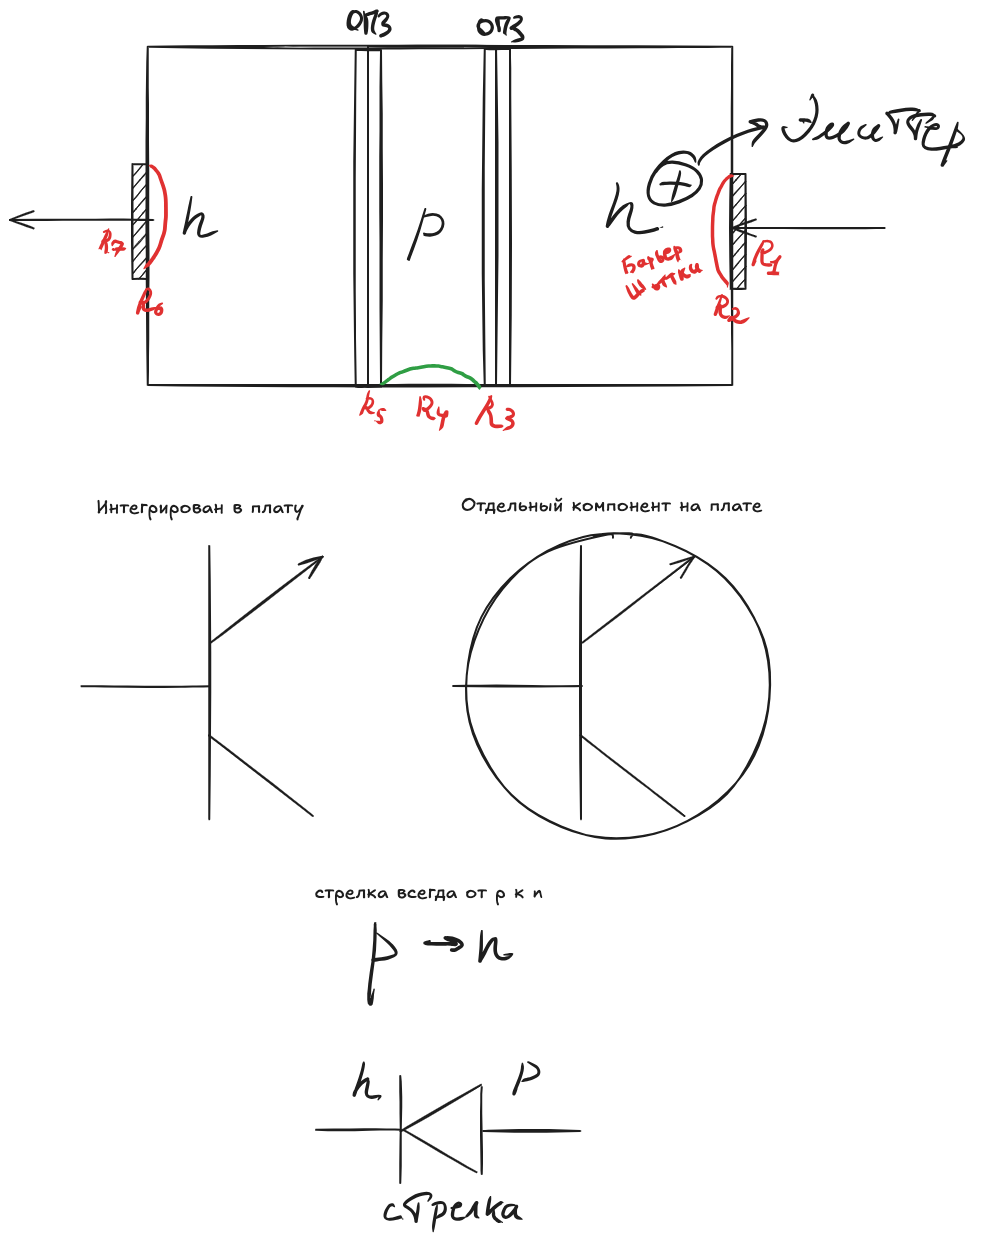 ОПЗ ОПЗ
Эмиттер
+
n p n
R7 R1
Барьер
Шоттки
R6 R2
R5 R4 R3
Интегрирован в плату
Отдельный компонент на плате
стрелка всегда от p к n
p → n
n p
стрелка